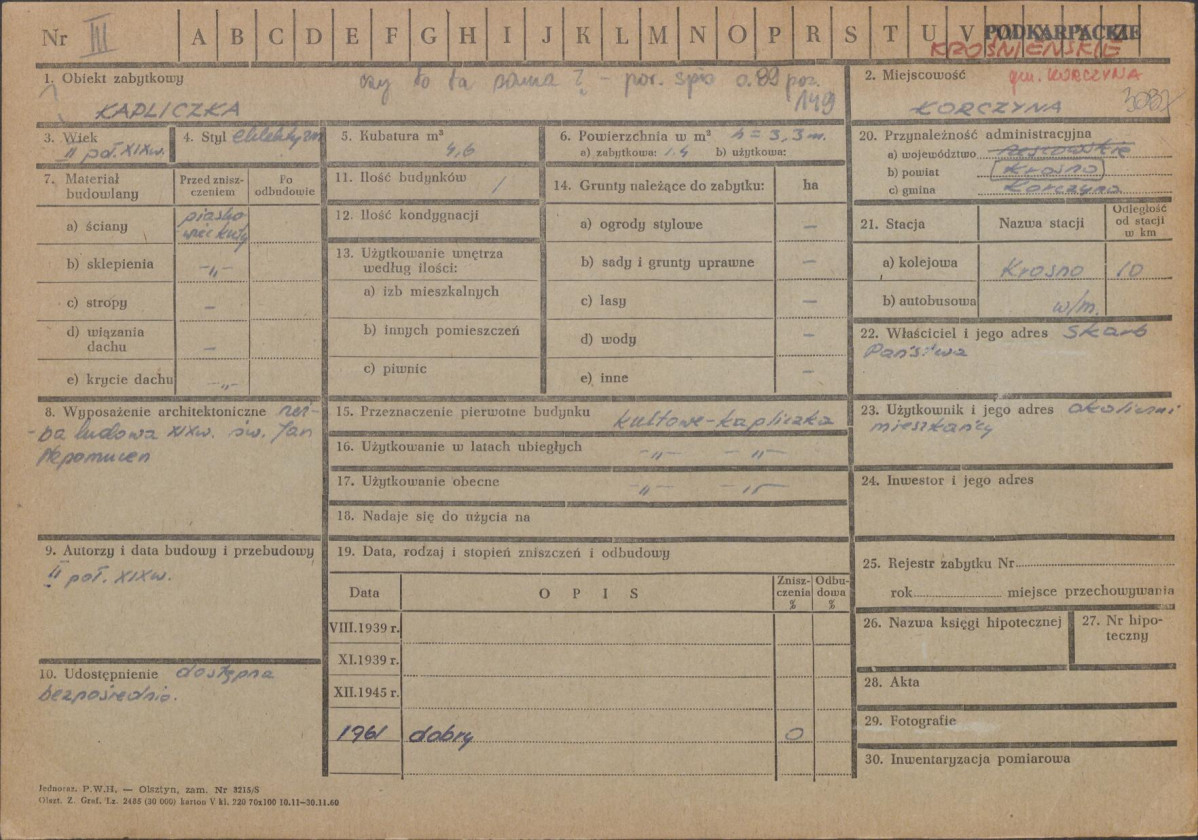 Nr III A B C D E F G H I J K L M N O P R S T U V PODKARPACKIE
KROŚNIEŃSKIE
1. Obiekt zabytkowy
czy to ta sama? – por. spis s. 89 poz. 149
KAPLICZKA
2. Miejscowość
gm. KORCZYNA
KORCZYNA
3. Wiek
II poł. XIXw.
4. Styl eklektyzm
5. Kubatura m³
4,6
6. Powierzchnia w m² h = 3,3 m.
a) zabytkowa: 1.4 b) użytkowa:
7. Materiał budowlany
Przed zniszczeniem
Po odbudowie
a) ściany
piaskowiec kuty
b) sklepienia –„–
c) stropy –
d) wiązania dachu –
e) krycie dachu –„–
8. Wyposażenie architektoniczne rzeź-
-ba ludowa XIXw. św. Jan
Nepomucen
9. Autorzy i data budowy i przebudowy
II poł. XIXw.
10. Udostępnienie dostępna
bezpośrednio.
11. Ilość budynków /
12. Ilość kondygnacji
13. Użytkowanie wnętrza
według ilości:
a) izb mieszkalnych
b) innych pomieszczeń
c) piwnic
14. Grunty należące do zabytku: ha
a) ogrody stylowe –
b) sady i grunty uprawne –
c) lasy –
d) wody –
e) inne –
15. Przeznaczenie pierwotne budynku kultowe – kapliczka
16. Użytkowanie w latach ubiegłych –„– –„–
17. Użytkowanie obecne –„– –„–
18. Nadaje się do użycia na
19. Data, rodzaj i stopień zniszczeń i odbudowy
Data OPIS Zniszczenia % Odbudowa %
VIII.1939 r.
XI.1939 r.
XII.1945 r.
1961 dobry 0
20. Przynależność administracyjna
a) województwo rzeszowskie
b) powiat Krosno
c) gmina Korczyna
21. Stacja Nazwa stacji Odległość od stacji w km
a) kolejowa Krosno 10
b) autobusowa w/m.
22. Właściciel i jego adres Skarb
Państwa
23. Użytkownik i jego adres okoliczni
mieszkańcy
24. Inwestor i jego adres
25. Rejestr zabytku Nr
rok miejsce przechowywania
26. Nazwa księgi hipotecznej
27. Nr hipoteczny
28. Akta
29. Fotografie
30. Inwentaryzacja pomiarowa
Jednoraz. P.W.H. — Olsztyn, zam. Nr 3215/S
Olszt. Z. Graf. Lz. 2485 (30 000) karton V kl. 220 70x100 10.11—30.11.60